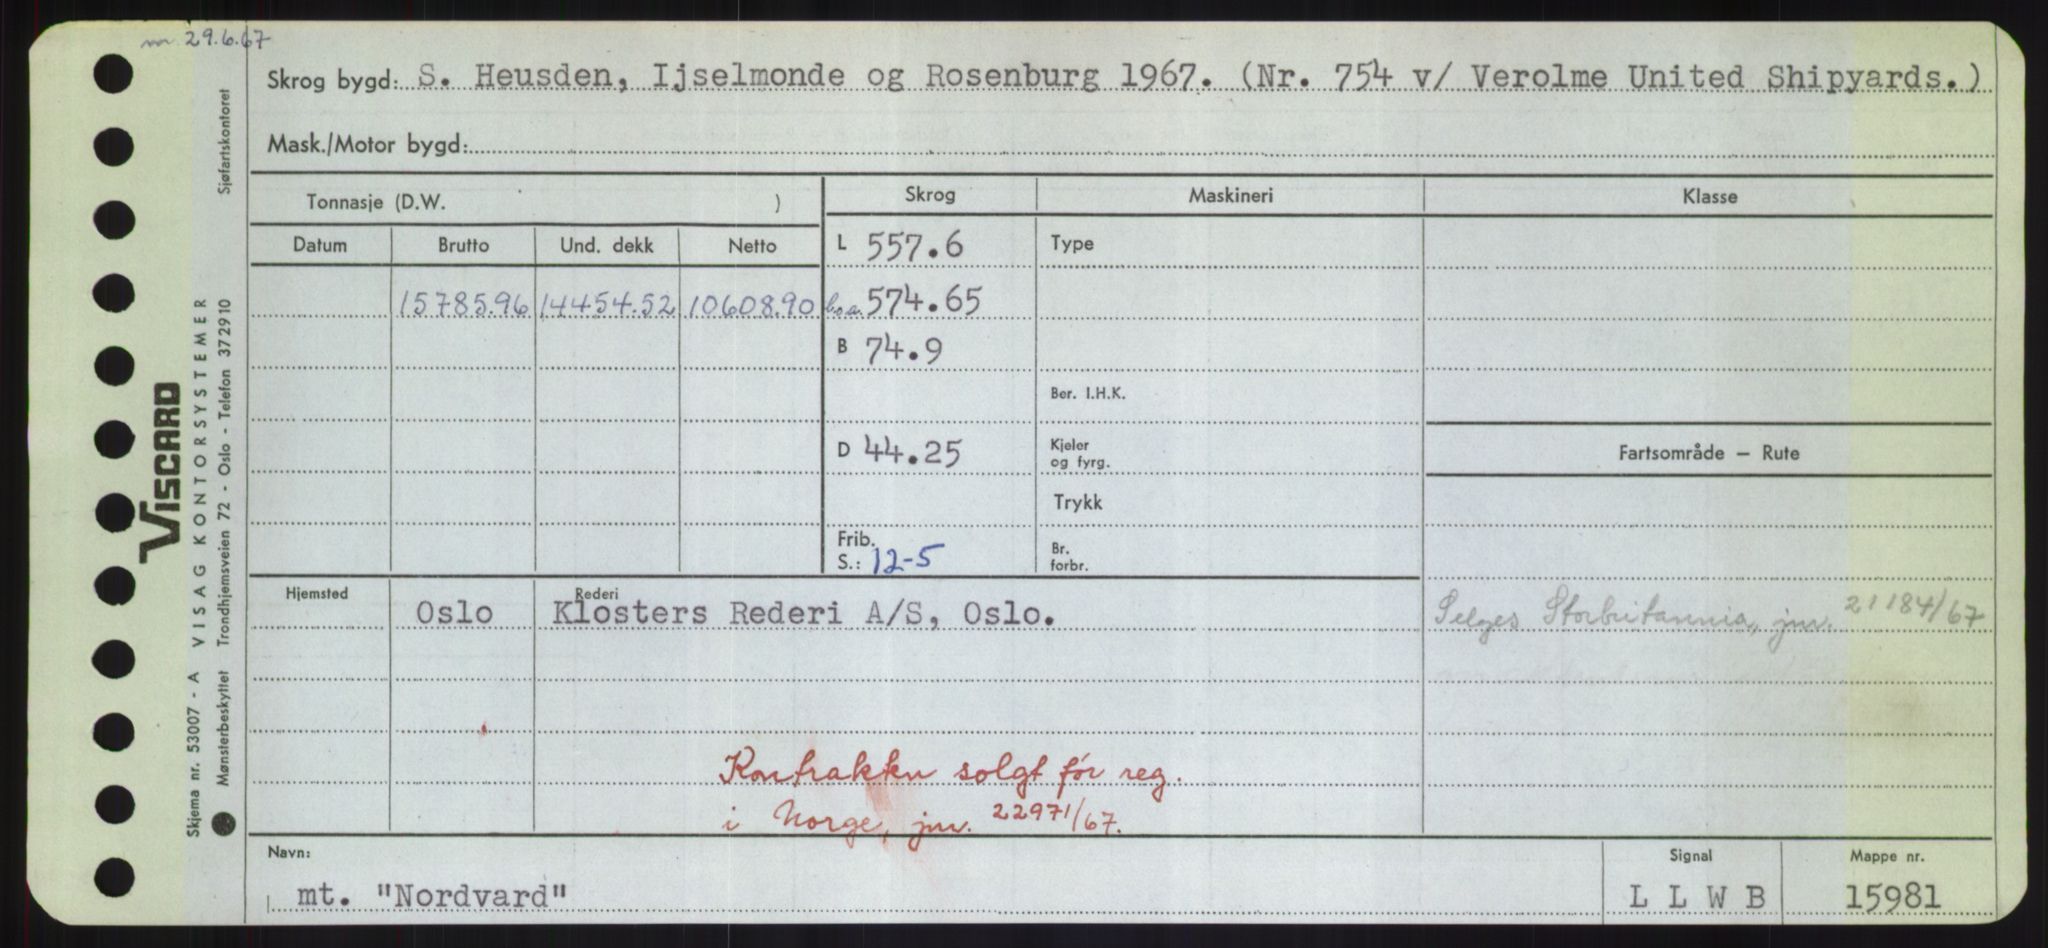 m 29.6.67
Skrog bygd: S. Heusden, Ijselmonde og Rosenburg 1967. (Nr. 754 v/ Verolme United Shipyards.)
Mask./Motor bygd:
Tonnasje (D.W. )
Skrog
Maskineri
Klasse
Datum
Brutto
Und. dekk
Netto
L 557.6
Type
15785.96
14454.52
10608.90
b.o.a. 574.65
B 74.9
Ber. I.H.K.
D 44.25
Kjeler
og fyrg.
Fartsområde — Rute
Trykk
Frib.
S.: 12-5
Br.
forbr.
Hjemsted
Oslo
Rederi
Klosters Rederi A/S, Oslo.
Selges Storbritannia, jnr. 21184/67
Kontrakten solgt før reg.
i Norge, jnr. 22971/67.
Navn:
mt. "Nordvard"
Signal
L L W B
Mappe nr.
15981
VISCARD
Skjema nr. 53007 - A VISAG KONTORSYSTEMER
Mønsterbeskyttet Trondhjemsveien 72 - Oslo - Telefon 372910 Sjøfartskontoret